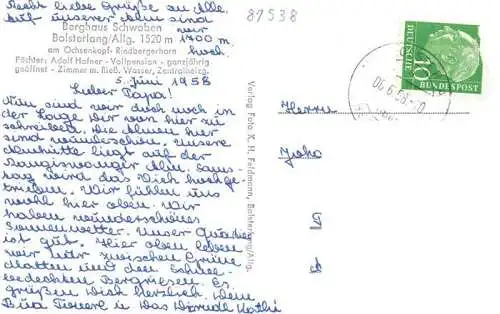 Recht liebe Grüße an Alle.
Auf unserer Alm sind
wir
1700 m.
hoch.
Berghaus Schwaben
Bolsterlang/Allg. 1520 m
am Ochsenkopf - Riedbergerhorn
Pächter: Adolf Hafner - Vollpension - ganzjährig
geöffnet - Zimmer m. fließ. Wasser, Zentralheizg.
5. Juni 1958
Lieber Papa!
Nun sind wir doch noch in
der Lage Dir von hier zu
schreiben. Die Almen hier
sind wunderschön. Unsere
hütte liegt auf der
Alm. Sams-
tag wird das Vieh hochge-
trieben. Wir fühlen uns
wohl hier oben. Wir
haben wunderschönes
Sonnenwetter. Unser Quartier
ist gut. Hier oben leben
wir nur zwischen Grüne
Matten und den Schnee-
bedeckten Bergriesen. Es
grüßen Dich herzlich. Dein
Bua und Das Dirndl Kathi
Verlag Foto K. H. Feldmann, Bolsterlang/Allg.
87538
Herrn
DEUTSCHE
BUNDESPOST
10
06.6.58